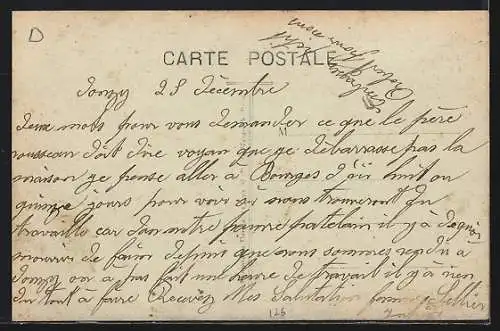 D
CARTE POSTALE
Donzy 28 Décembre
deux mots pour vous demander ce que le père
rousseau doit dire voyan que ge débarrasse pas la
maison ge pense aller à Bourges d'ici huit ou
quinze jours pour voir si nous trouveront du
travaille car dan notre pauvre patelain il y à de quoi
mourire de faim depuis que nous sommes rendu à
Donzy on à pas fait une heure de travail il y à rien
du tout à faire Recevez Mes Salutation
M
126